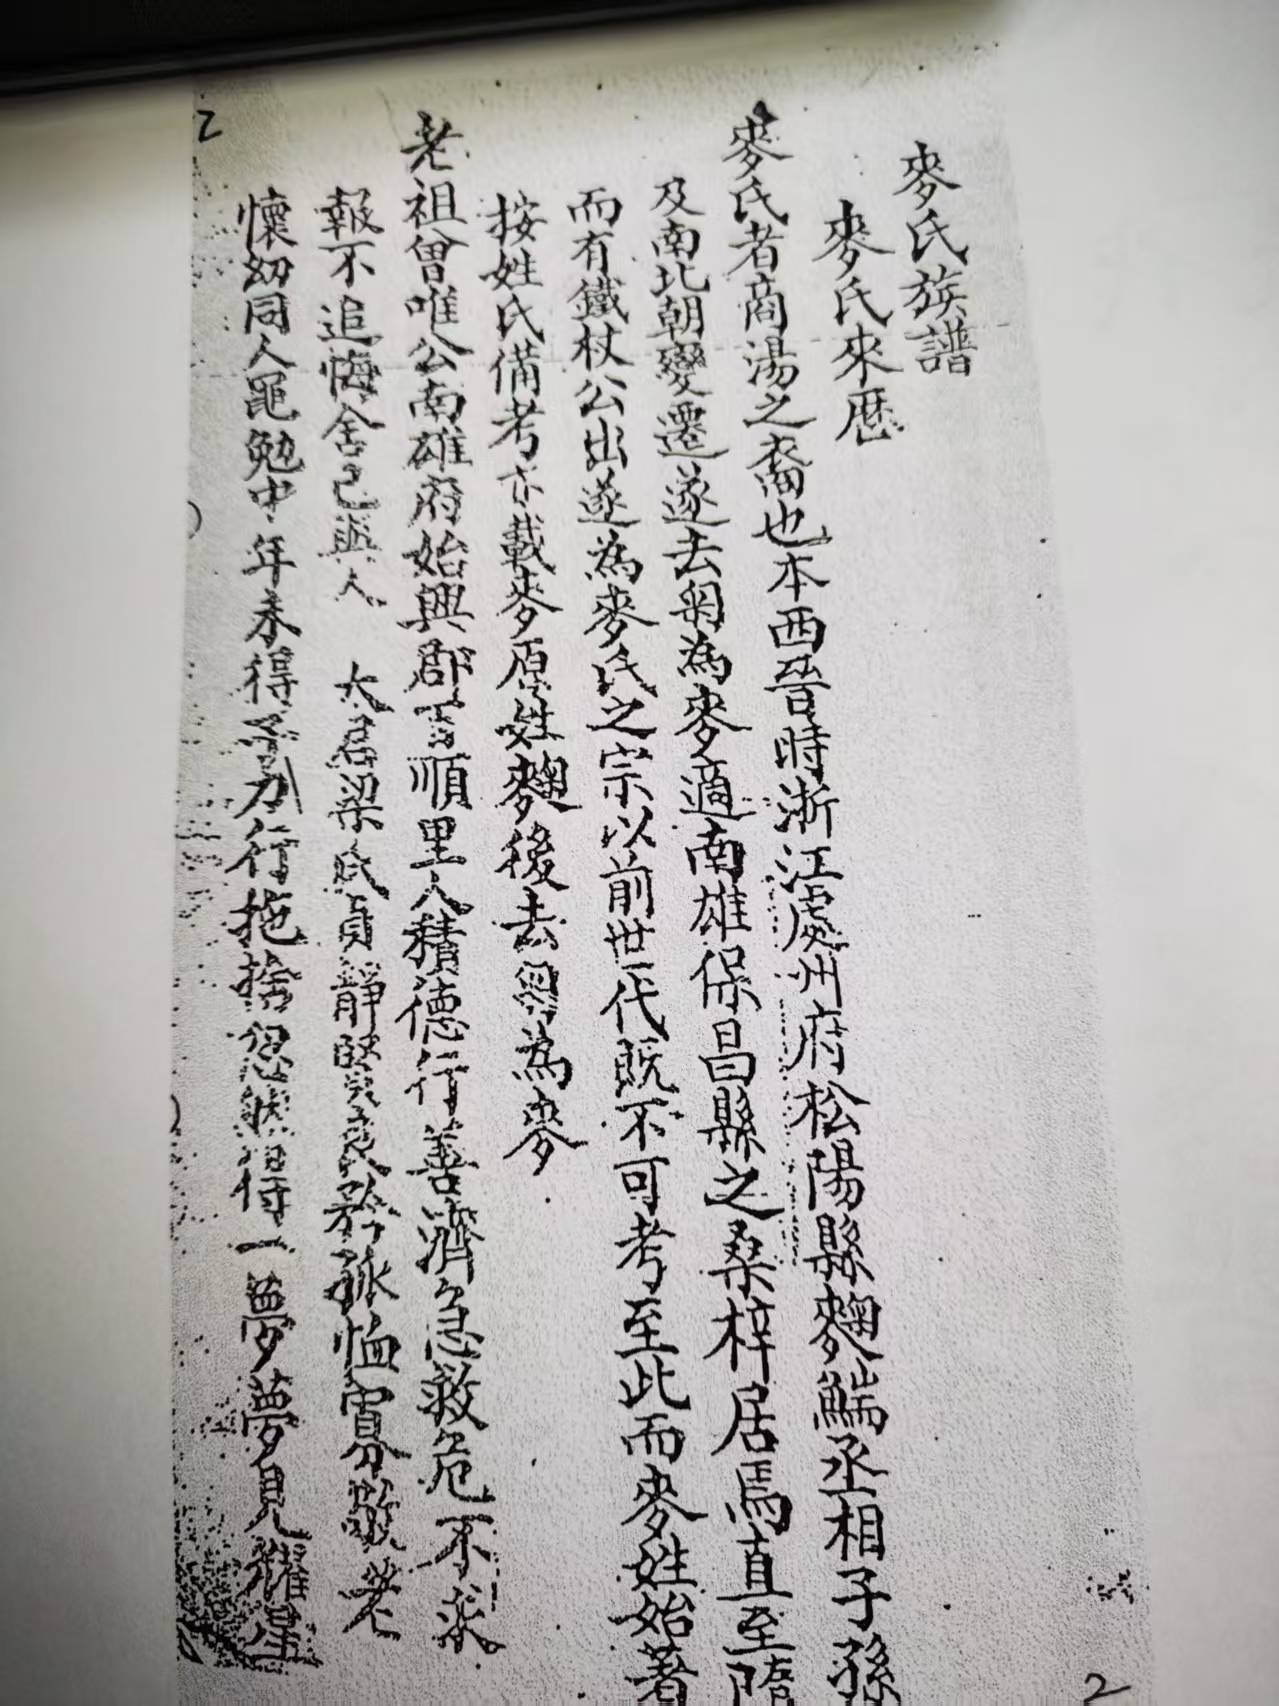 麥氏族譜
麥氏來歷
麥氏者商湯之裔也本西晉時浙江處州府松陽縣麴鱅丞相子孫
及南北朝變遷遂去匊為麥適南雄保昌縣之桑梓居焉直至隋
而有鐵杖公出遂為麥氏之宗以前世代既不可考至此而麥姓始著
按姓氏備考亦載麥原姓麴後去匊為麥
老祖曾唯公南雄府始興郡百順里人積德行善濟急救危不求
報不追悔舍己與人 太君梁氏貞靜賢良矜孤恤寡敬老
懷幼同人黽勉中年未得子力行施捨忽然得一夢夢見耀星
2
2